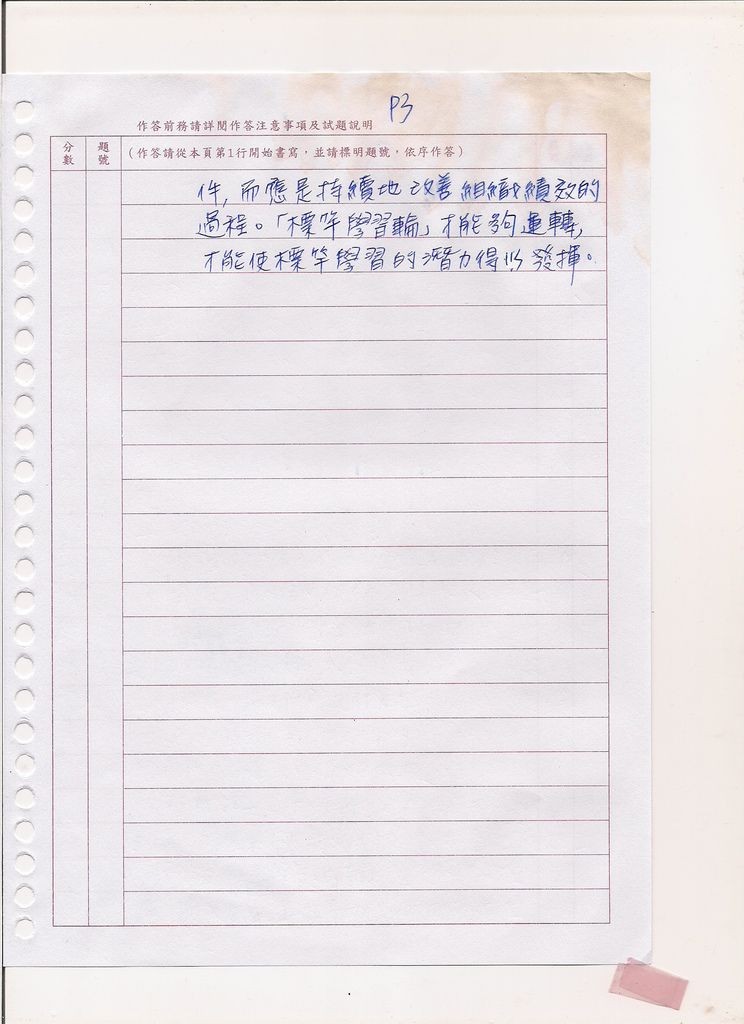 P3
作答前務請詳閱作答注意事項及試題說明
分數
題號
(作答請從本頁第1行開始書寫，並請標明題號，依序作答)
件, 而應是持續地改善組織績效的
過程。「標竿學習輪」才能夠運轉,
才能使標竿學習的潛力得以發揮。